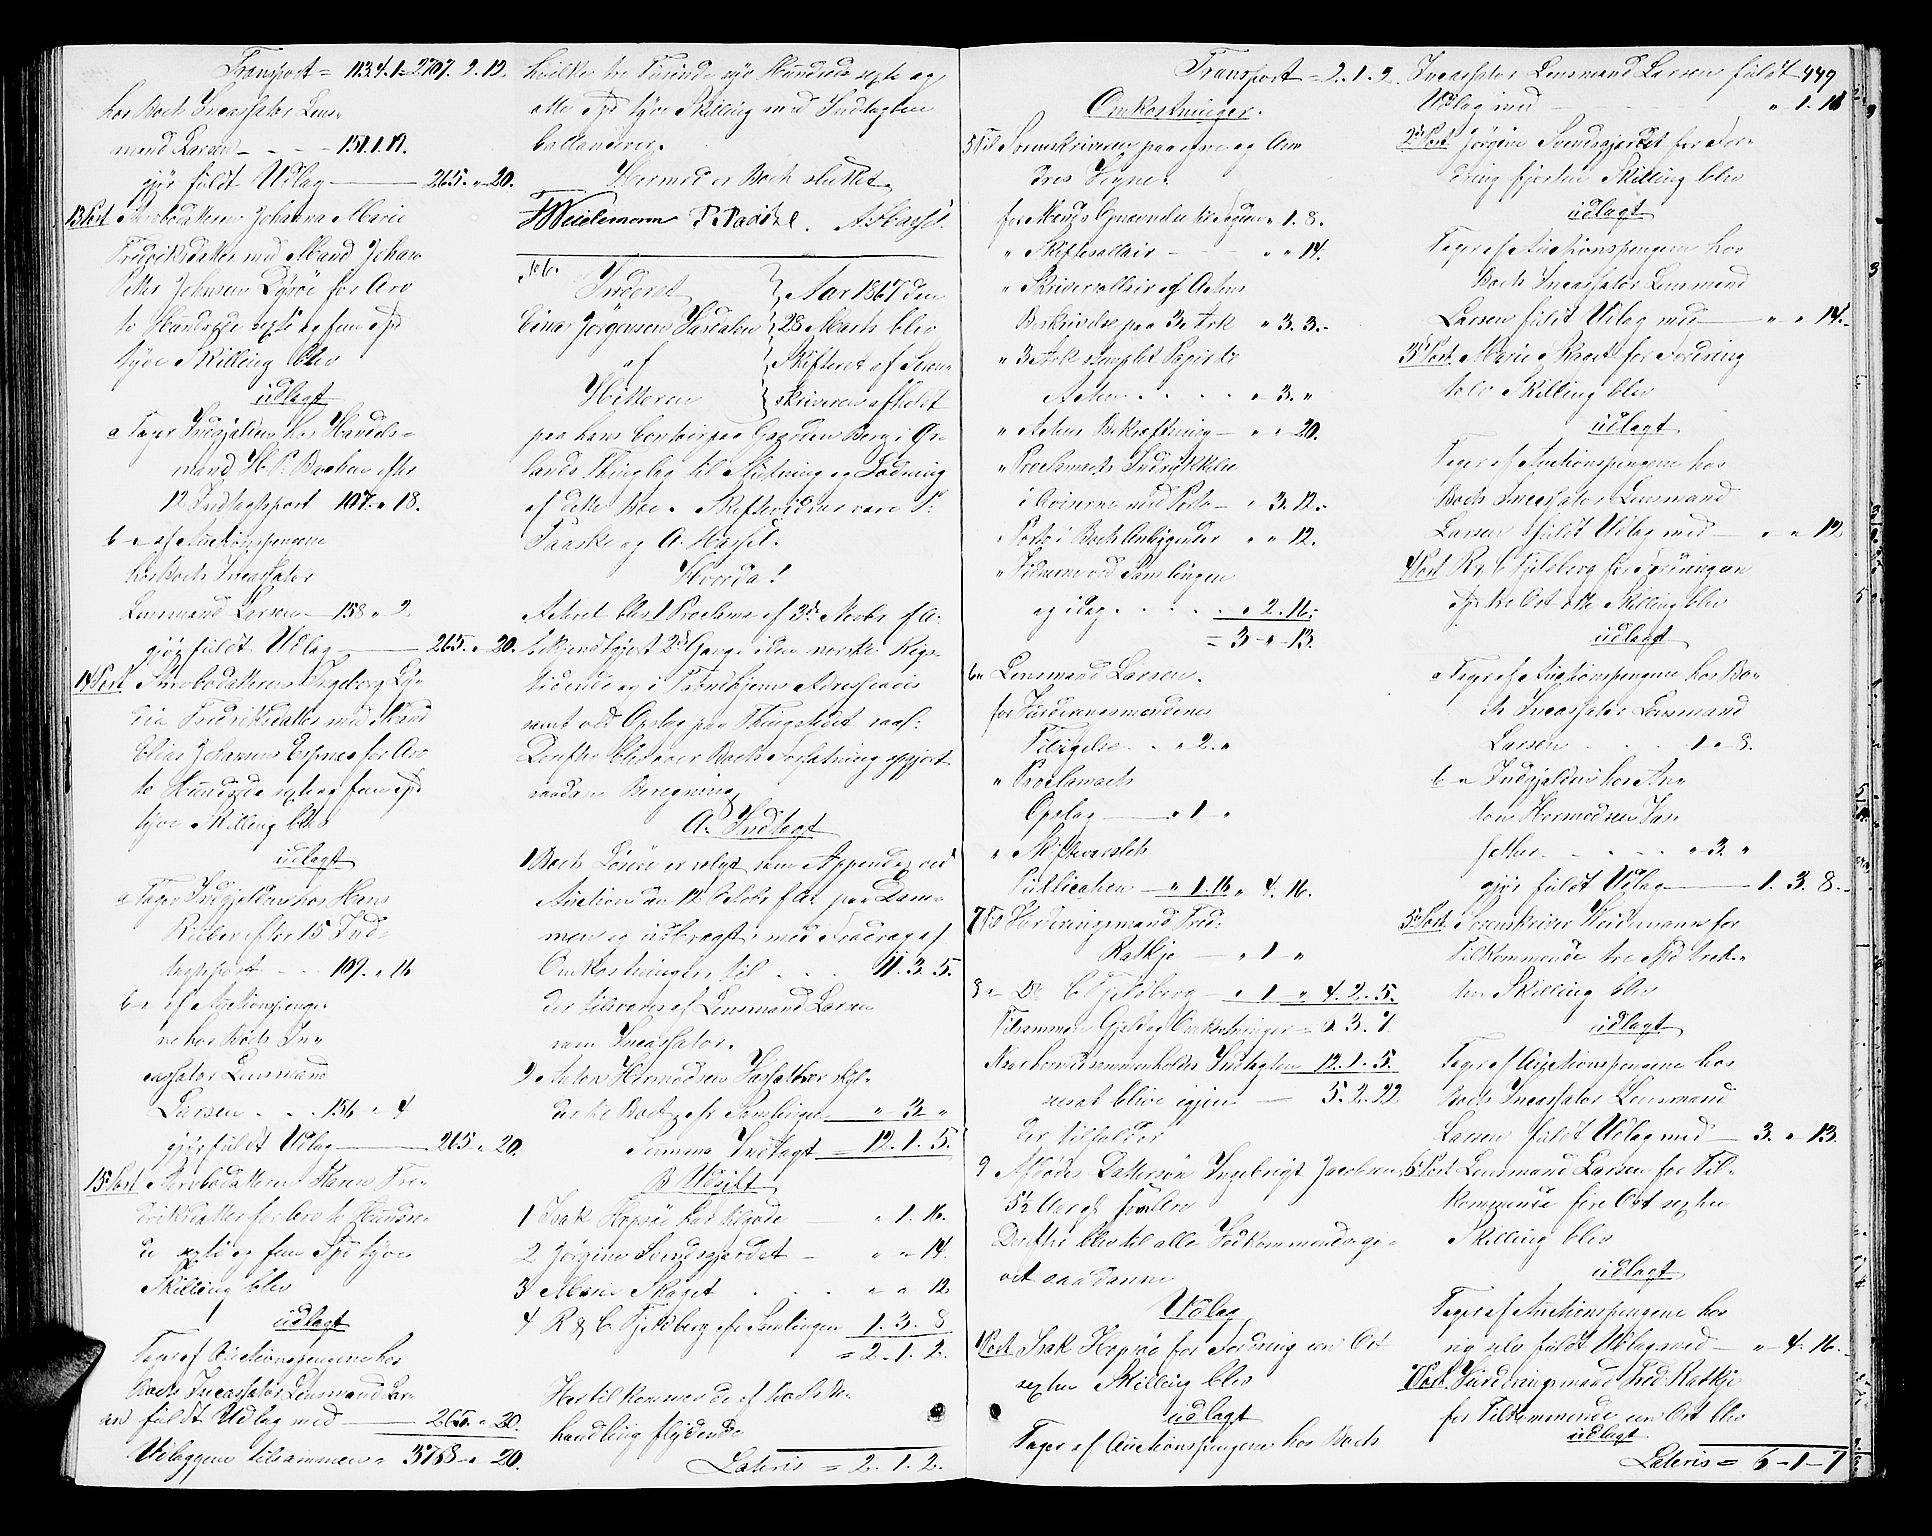 Transport = 113.4.1 = 2707.2.12.
hos Boets Incassator Lens-
mand Larsen - - - 151.1.19.
gjør fuldt Udlag - 265. " 20.
13 Post Arvedatteren Johanna Marie
Fredriksdatter med Mand Johan
Petter Johnsen Dyrøe for Arv
to Hundrede sexti og fem Spd
tyve Skilling blev
udlagt
a Tager Indgjelden hos Handels-
mand H. P. Bachen efter
12 Indtægtspost 107. " 18.
b - af Auctionspengene
hos Boets Incassator
Lensmand Larsen - 158 " 2
gjør fuldt Udlag - 265. " 20.
14 Post Arvedatteren Ingeborg
Fredriksdatter med Mand
Elias Johansen Espnes for Arv
to Hundrede sexti og fem Spd
tyve Skilling blev
udlagt
a Tager Indgjelden hos Hans
efter 15 Ind-
tægtspost - 109. " 16
b - af Auctionspenge-
ne hos Boets In-
cassator Lensmand
Larsen . . . 156 " 4
gjør fuldt Udlag - 265 " 20.
15 Post Arvedatteren Karen Fre-
driksdatter for Arv to Hundre-
de sexti og fem Spd tyve
Skilling blev
udlagt
Tager af Auctionspengene hos
Boets Incassator Lensmand Lar-
sen fuldt Udlag med - 265. " 20.
Udlæggene tilsammen = 3768 " 20.
hvilke tre Tusinde syv Hundrede sexti og
otte Spd tyve Skilling med Indtægten
ballancerer.
Hermed er Boet sluttet.
Weidemann P. Paaske. A. Hassel.
Inderst
Einar Jørgensen
af
Hitteren
Aar 1867 den
28 Marts blev
Skifteret af Soren-
skriveren afholdt
paa hans Contoir paa Gaarden Berg i Ør-
lands Thinglag til Slutning og Lodning
af dette Boe. Skiftevidner vare P.
Paaske og A. Hassel.
Hvorda!
Acteret blev Proclama af 3de Novbr f. A.
bekjendtgjort 2de Gange i den norske Rigs-
tidende og i Trondhjems Adresseavis
samt ved Opslag paa Thingstedet
Derefter blev over Boets Forfatning opgjort
saadan Beregning
A. Indtægt
1 Boets Løsøre er solgt som Appendix ved
Auction den 12 Octobr f. A. paa Dom-
men og udbragt, med Fradrag af
Omkostninger, til . . . 11. 3. 5.
der tilsvares af Lensmand Larsen
som Incassator.
2 Anton Hermodsen Vasfather skyl-
der til Boet efter Samlingen " 3 "
Summa Indtægt = 12. 1. 5.
B. Udgift
1 Isak Hopsøe har tilgode - " 1. 16.
2 Jørgine Svendsgjerdet - " " 14.
3 Marie Skaget . . . " " 12
4 R & C. Fjeldberg efter Samlingen 1. 3. 8
= 2. 1. 2.
Hertil kommer de af Boets Be-
handling flydende
Lateris = 2. 1. 2.
Transport = 2. 1. 2.
Omkostninger.
5 Til Sorenskriveren paa egne og An-
dres Vegne.
" 1. 8.
" Skiftesallair - " " 14.
" Skriversallair af Actens
Beskrivelse paa 3 Ark " 3. 3. -
" 3 Ark stemplet Papir til
Acten . . . . " 3. "
" Actens Bekræftning - " " 20.
" Proclamaets Indrykkelse
i Aviserne med Porto - " 3. 12. -
" Porto i Boets Anliggender " " 12.
" Vidnerne ved Samlingen
og idag . . . . " 2. 16. -
= 3 - " - 13.
6 " Lensmand Larsen.
for Vurderingsmændenes
Tilsigelse . . " 2. "
" Proclamaets
Opslag - " 1 "
" Skiftevarslets
Publication - " 1. 16 " 4. 16.
7 To Vurderingsmænd Fred:
Ratkje - " 1 "
8 " Do C. Fjeldberg - " 1 " 4. 2. 5.
Tilsammen Gjeld og Omkostninger = 6. 3. 7.
Naar hermed sammenholdes Indtægten 12. 1. 5.
sees at blive igjen - 5. 2. 22
der tilfalder
9 Afdødes Dattersøn Ingebrigt Jacobsen
5½ Aar gl. som Arv
Derefter blev til alle Vedkommende gi-
vet saadanne
Udlæg
1 Post Isak Hopsøe for Fordring en Ort
sexten Skilling blev
udlagt
Tager af Auctionspengene hos Boets
Incassator Lensmand Larsen fuldt 449
Udlæg med " 1. 16
2 Post Jørgine Svendsgjerdet for For-
dring fjorten Skilling blev
udlagt
Tager af Auctionspengene hos
Boets Incassator Lensmand
Larsen fuldt Udlæg med - " " 14. -
3 Post Marie Skaget for Fordring
tolv Skilling blev
udlagt
Tager af Auctionspengene hos
Boets Incassator Lensmand
Larsen fuldt Udlæg med - " " 12
4 Post R. & C. Fjeldberg for Fordring en
Spd tre Ort otte Skilling blev
udlagt
a Tager af Auctionspengene hos Bo-
ets Incassator Lensmand
Larsen . . . 1 " 8.
b " Indgjelden hos An-
ton Hermodsen Vas-
father . . . " 3 "
gjør fuldt Udlæg - 1. 3. 8. -
5 Post Sorenskriver Weidemann for
Tilkommende tre Spd tret-
ten Skilling blev
udlagt
Tager af Auctionspengene hos
Boets Incassator Lensmand
Larsen fuldt Udlæg med - 3. " 13
6 Post Lensmand Larsen for Til-
kommende fire Ort sexten
Skilling blev
udlagt
Tager af Auctionspengene hos
sig selv fuldt Udlæg med - " 4. 16. -
7 Post Vurderingsmand Fred Ratkje
for Tilkommende en Ort blev
udlagt
Lateris = 6 - 1 - 7